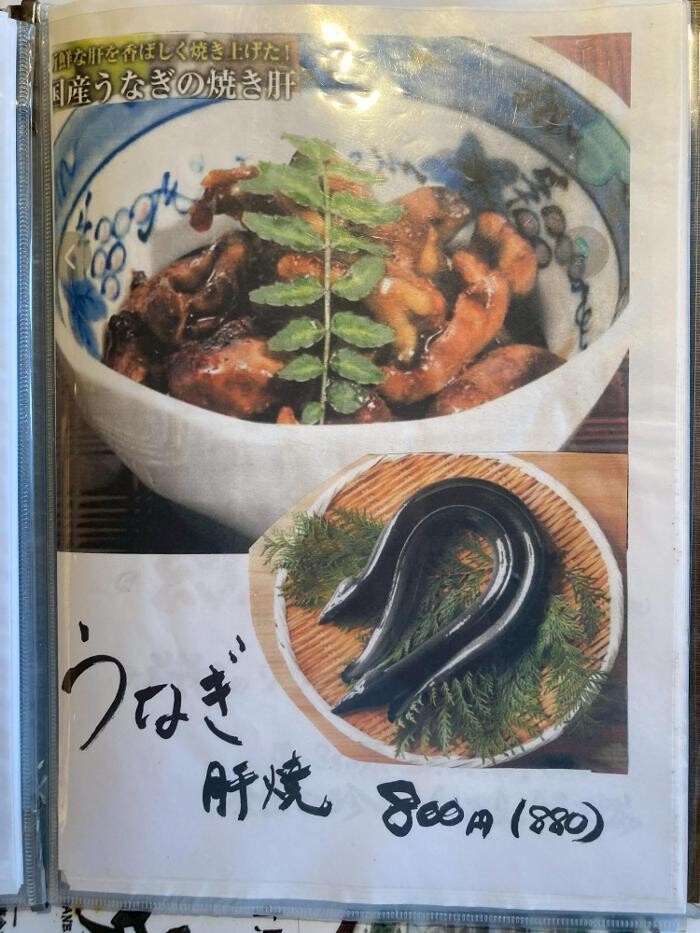 鮮な肝を香ばしく焼き上げた!
国産うなぎの焼き肝
うなぎ
肝焼
800円(880)